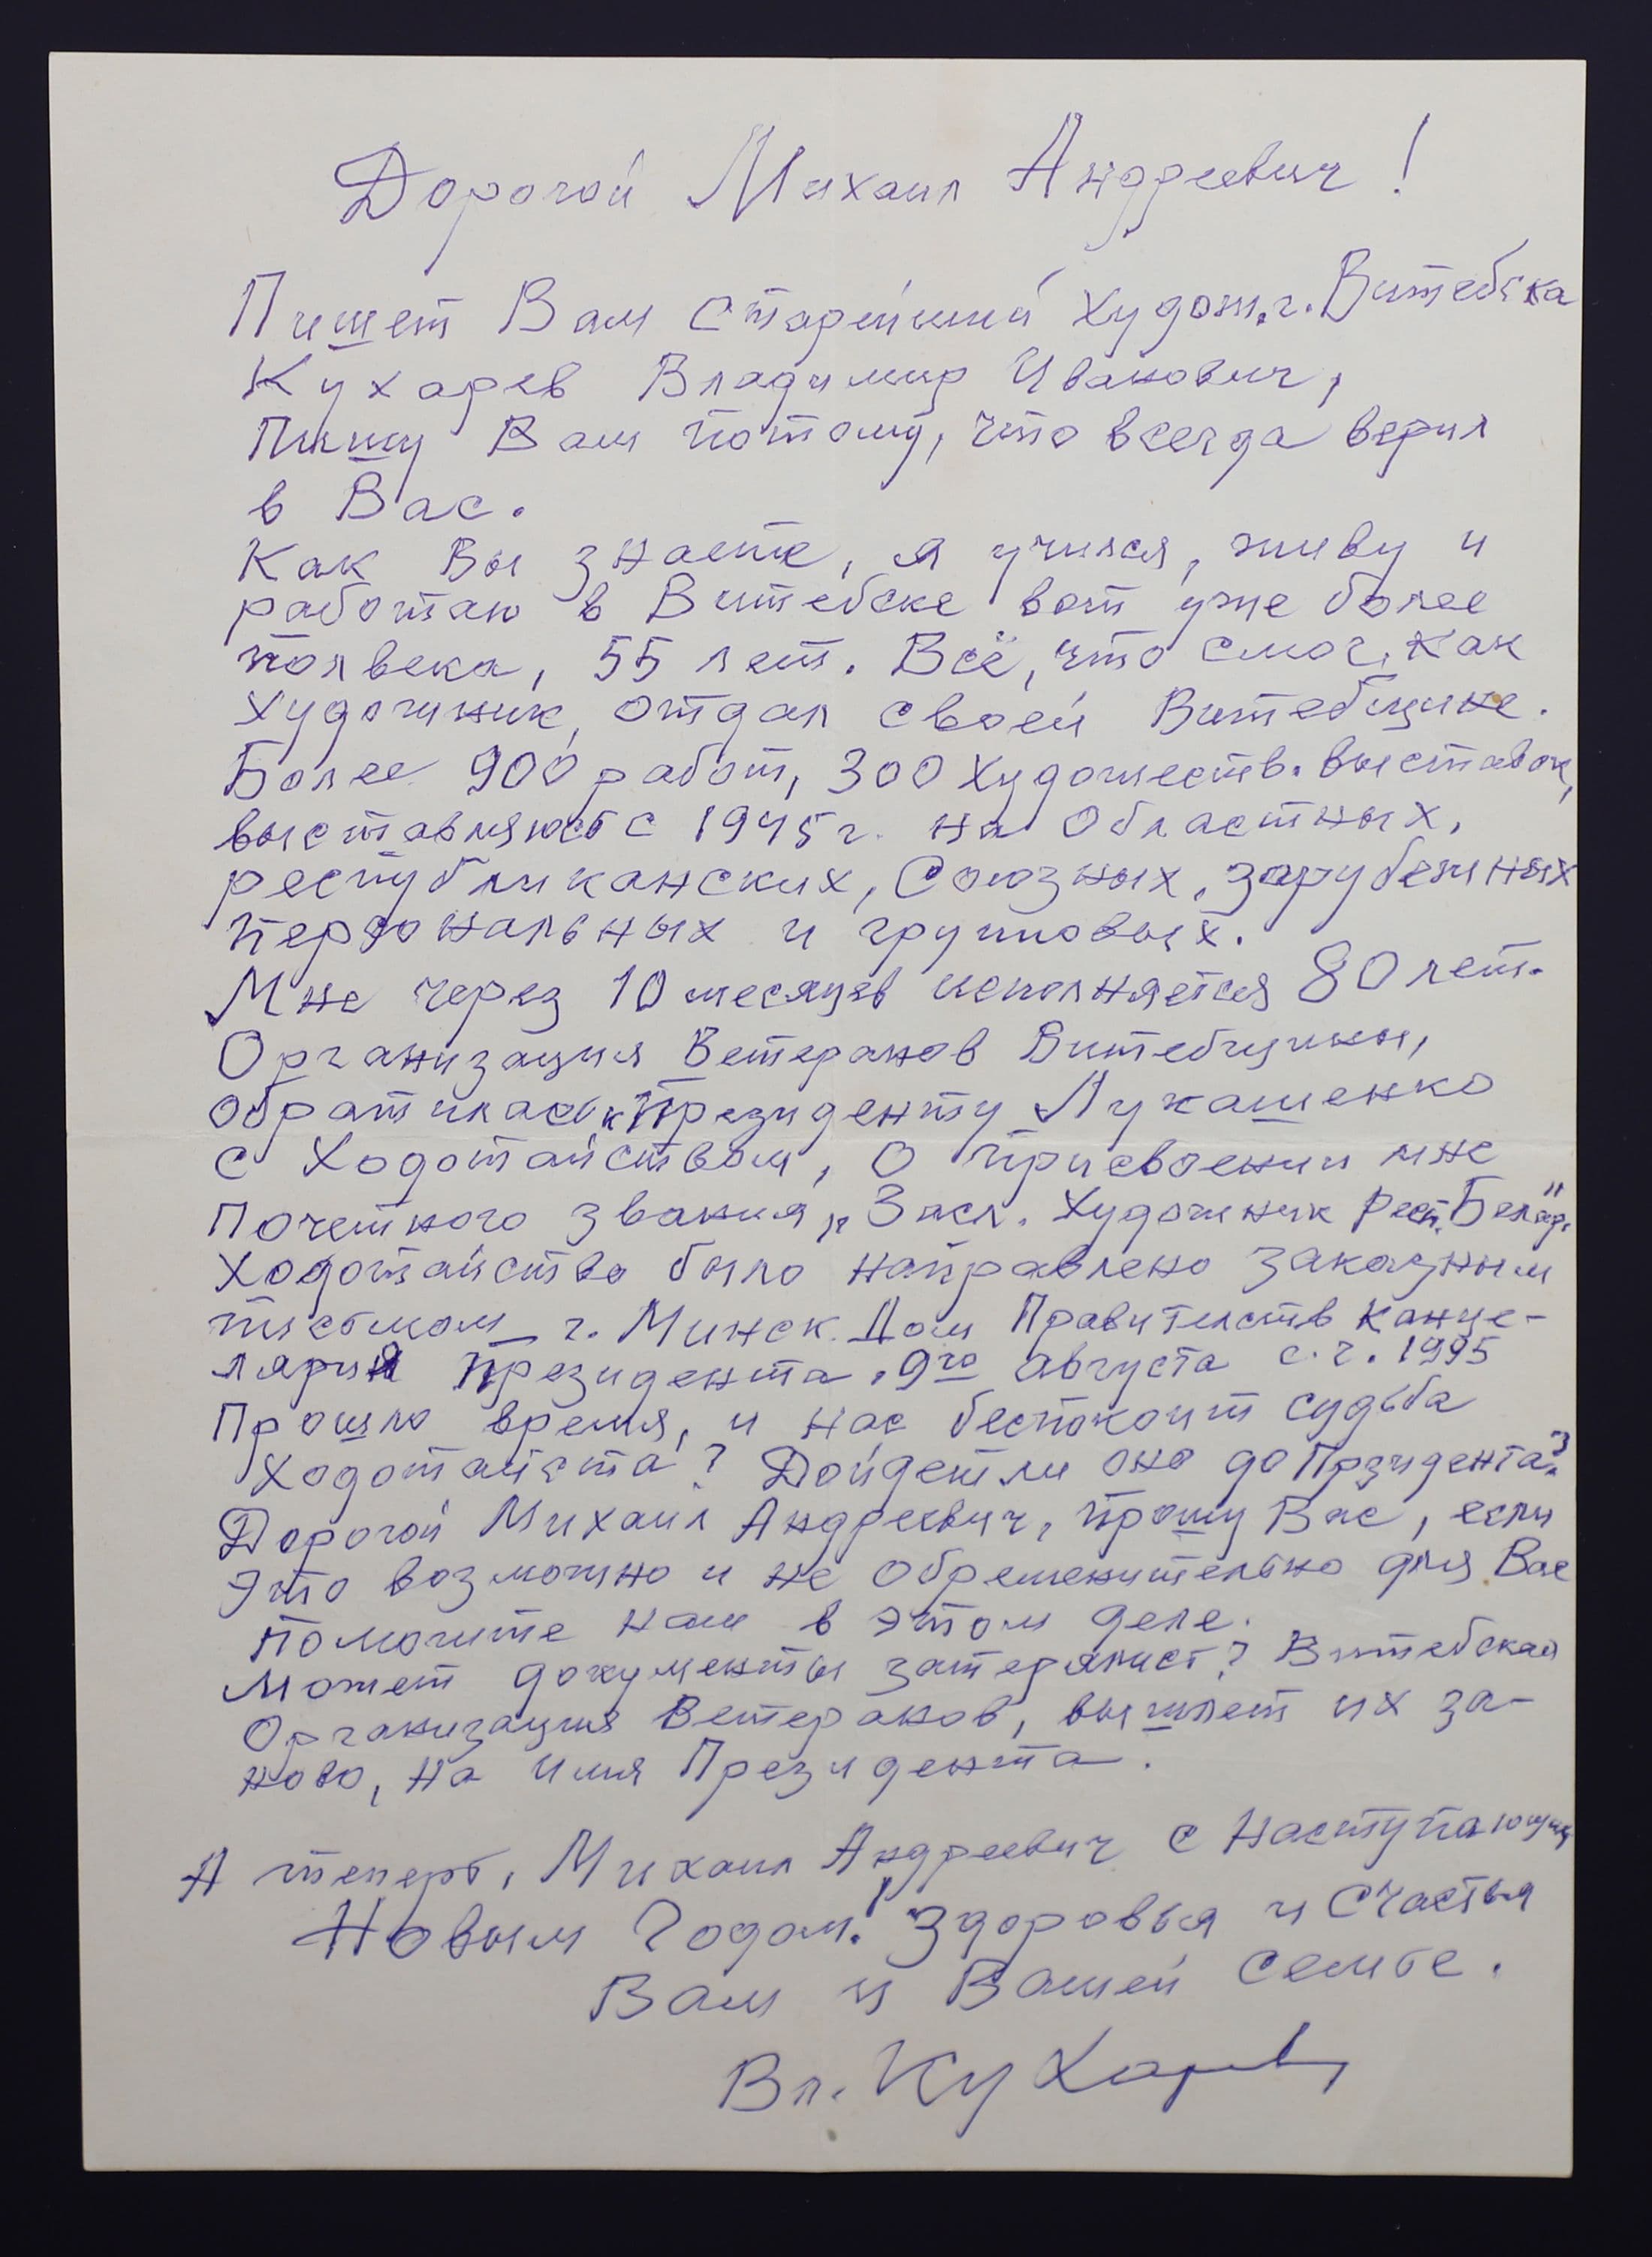 Дорогой Михаил Андреевич!
Пишет Вам старейший худож. г. Витебска
Кухарев Владимир Иванович,
Пишу Вам потому, что всегда верил
в Вас.
Как Вы знаете, я учился, живу и
работаю в Витебске вот уже более
полвека, 55 лет. Всё, что смог, как
художник, отдал своей Витебщине.
Более 900 работ, 300 художеств. выставок,
выставляюсь с 1945 г. на областных,
республиканских, Союзных, зарубежных
персональных и групповых.
Мне через 10 месяцев исполняется 80 лет.
Организация Ветеранов Витебщины,
обратилась к Президенту Лукашенко
с Ходотайством, о присвоении мне
Почетного звания „Засл. Художник Респ. Белар."
Ходотайство было направлено заказным
письмом – г. Минск. Дом Правительств Канце-
лярия Президента. 9го августа с.г. 1995
Прошло время, и нас беспокоит судьба
Ходотайста? Дойдет ли оно до Прзидента?
Дорогой Михаил Андреевич, прошу Вас, если
это возможно и не обременительно для Вас
помогите нам в этом деле.
Может документы затерялись? Витебская
Организация Ветеранов, вышлет их за-
ново, на имя Президента.
А теперь, Михаил Андреевич с Наступающим
Новым Годом! Здоровья и Счастья
Вам и Вашей семье.
Вл. Кухарев